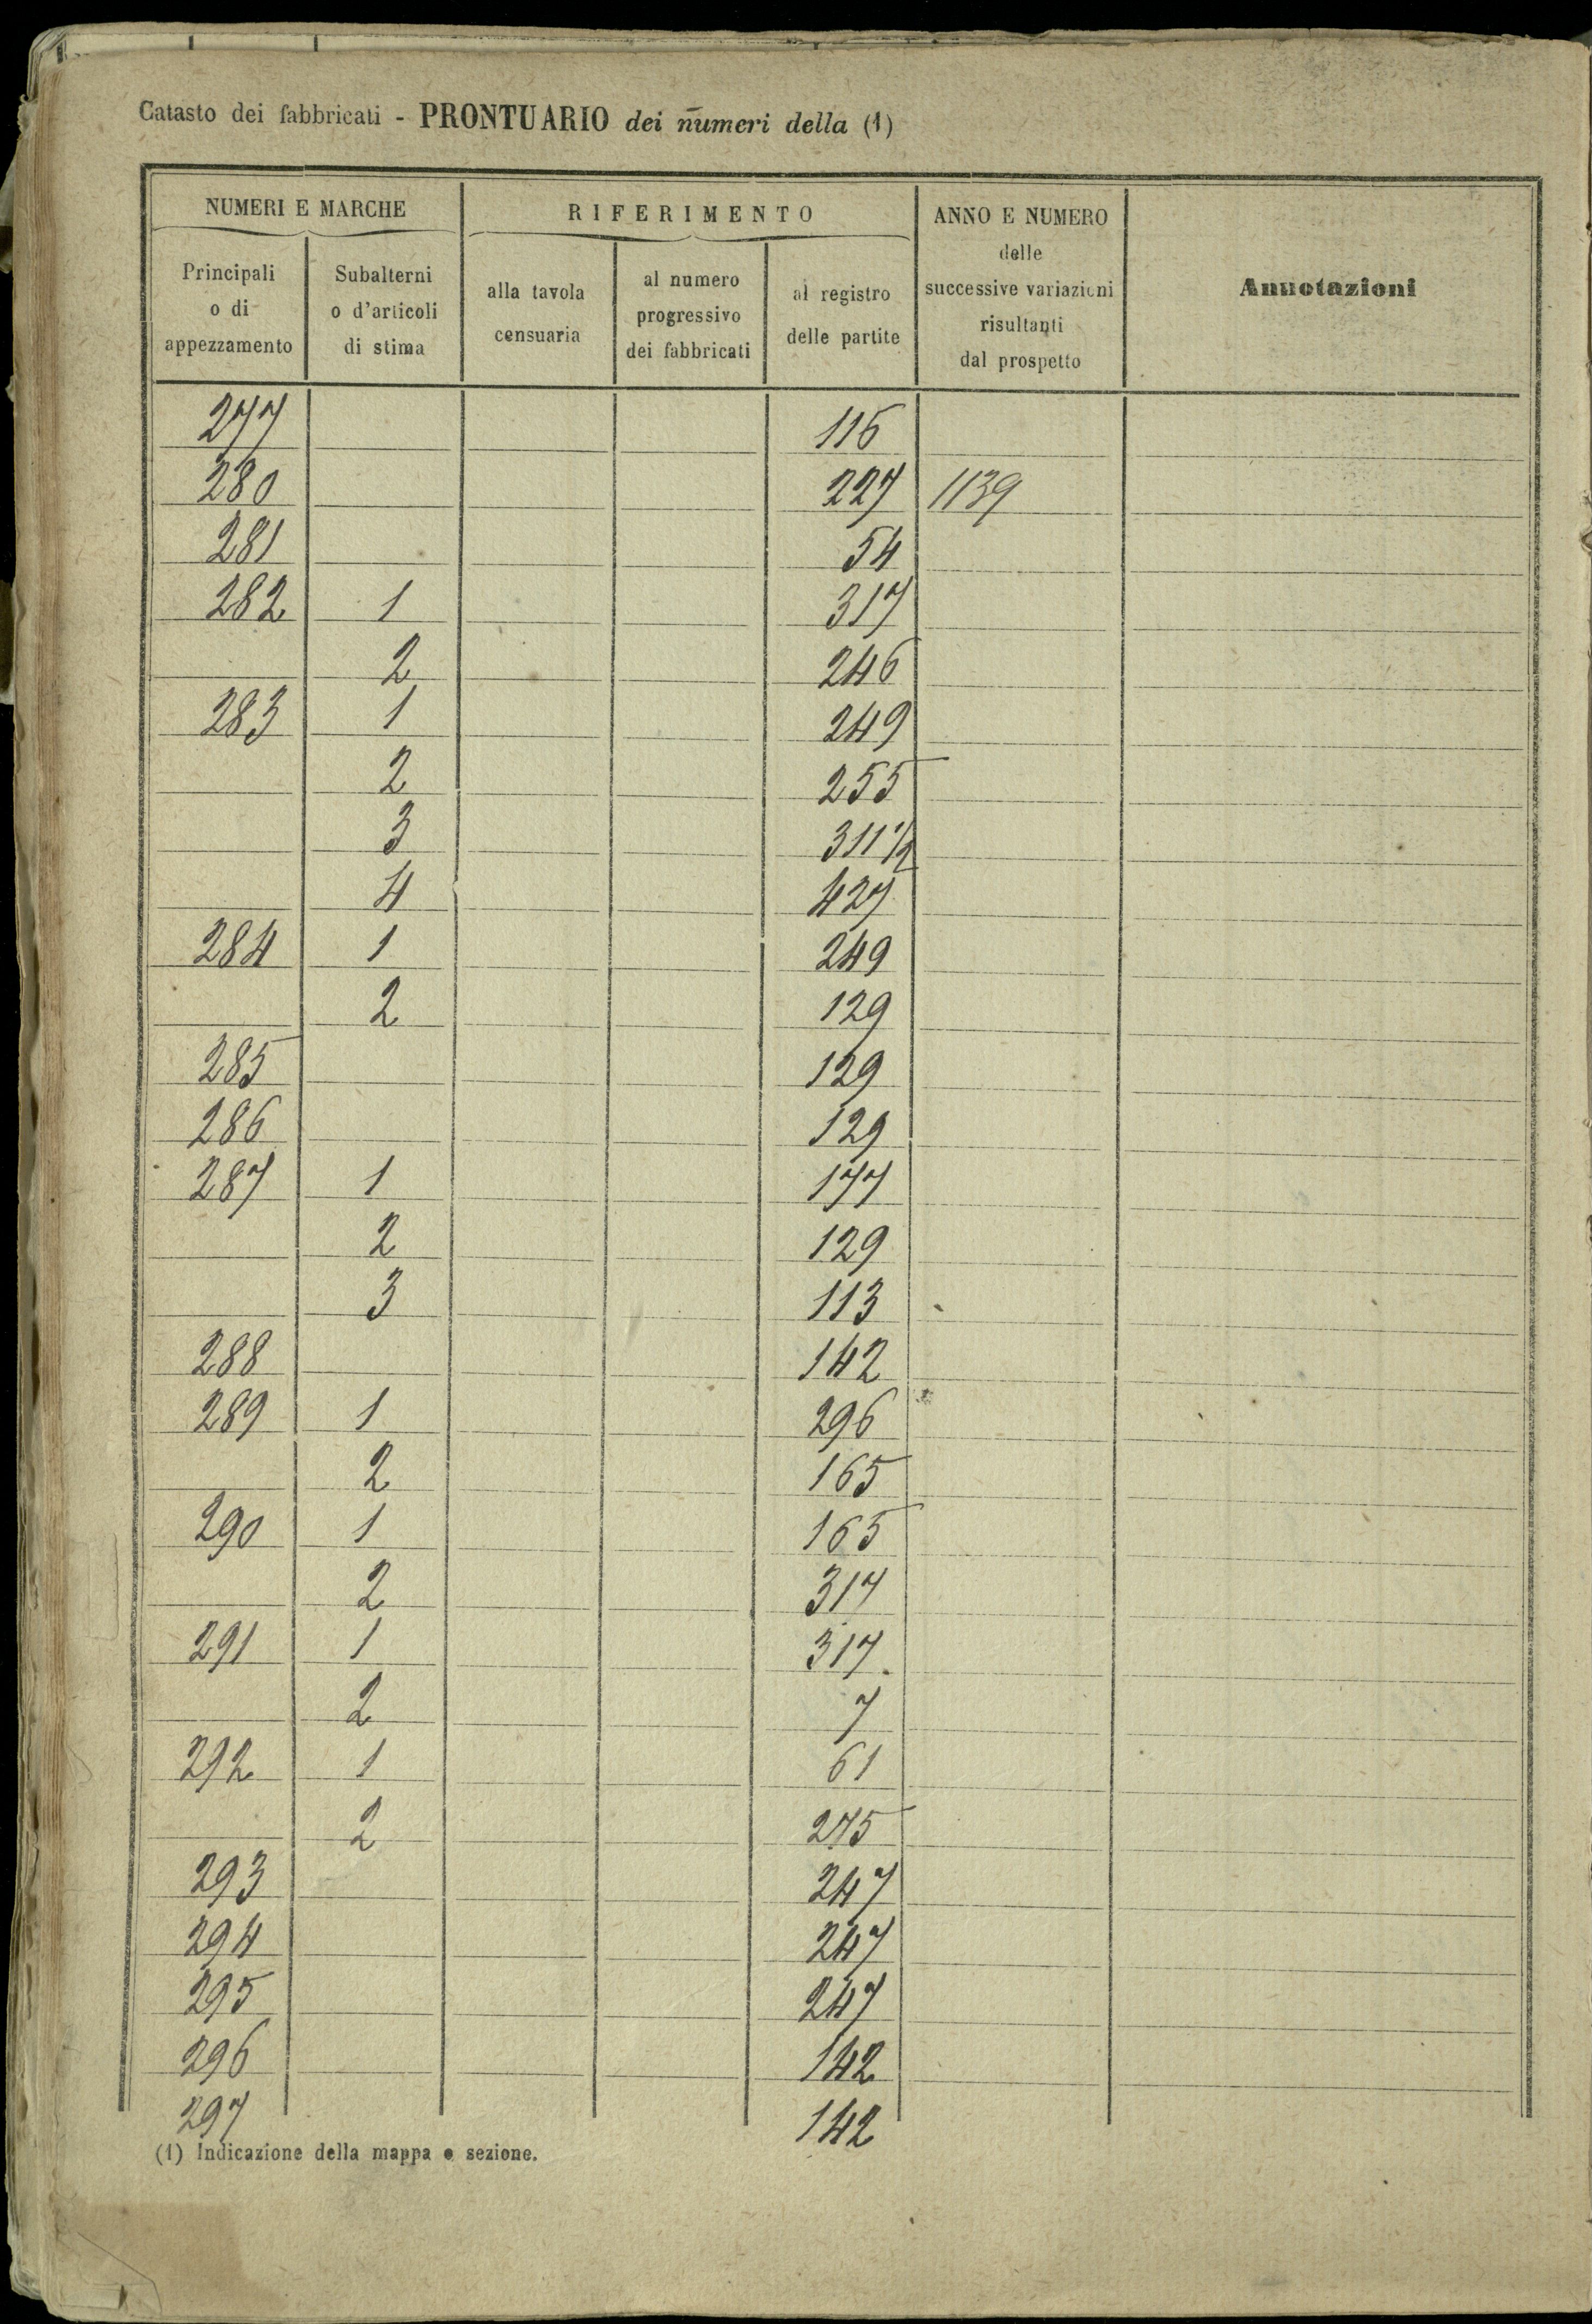 Catasto dei fabbricati - PRONTUARIO dei numeri della (1)
NUMERI E MARCHE
RIFERIMENTO
ANNO E NUMERO
delle
successive variazioni
risultanti
dal prospetto
Annotazioni
Principali
o di
appezzamento
Subalterni
o d'articoli
di stima
alla tavola
censuaria
al numero
progressivo
dei fabbricati
al registro
delle partite
277 116
280 227 1139
281 54
282 1 317
2 246
283 1 249
2 255
3 311 1/2
4 427
284 1 249
2 129
285 129
286 129
287 1 177
2 129
3 113
288 142
289 1 296
2 165
290 1 165
2 317
291 1 317
2 7
292 1 61
2 275
293 247
294 247
295 247
296 142
297 142
(1) Indicazione della mappa o sezione.